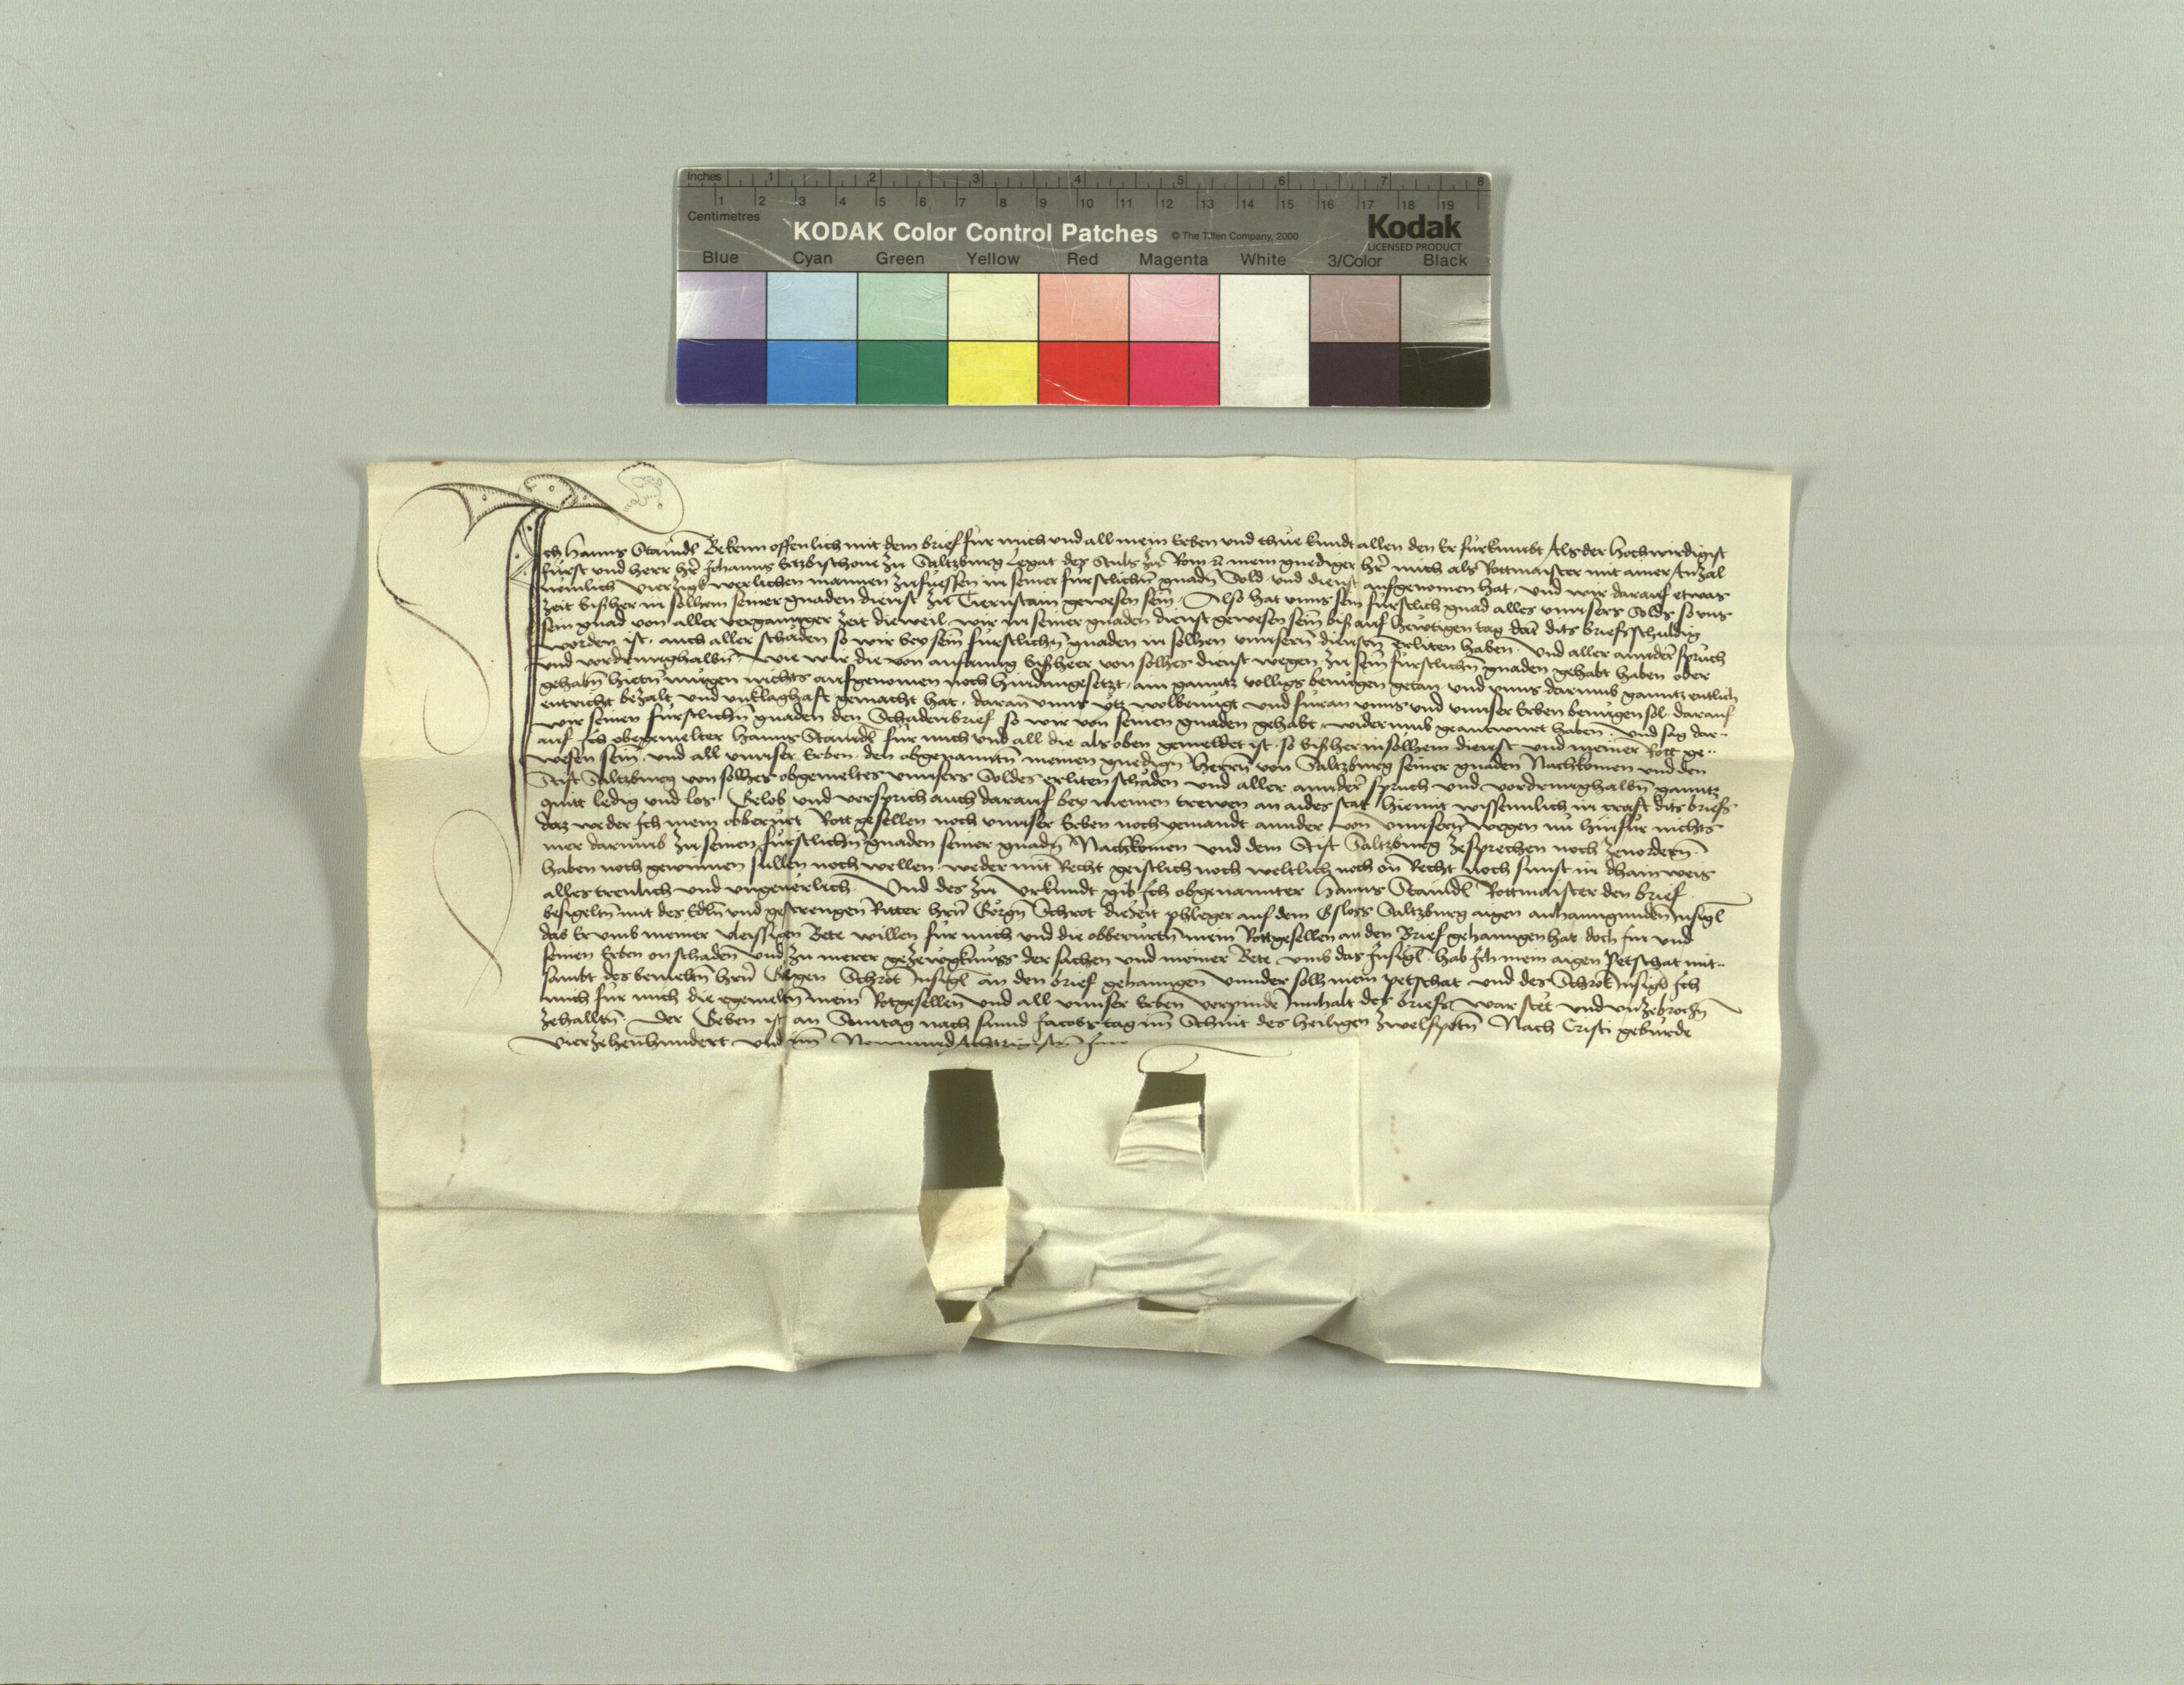 Inches 1 2 3 4 5 6 7 8
1 2 3 4 5 6 7 8 9 10 11 12 13 14 15 16 17 18 19
Centimetres
KODAK Color Control Patches © The Tiffen Company, 2000 Kodak
LICENSED PRODUCT
Blue Cyan Green Yellow Red Magenta White 3/Color Black
Ich Hanns Staindl Bekenn offenlich mit dem brief fur mich und all mein Erben und thue kundt allen den Er furkumbt Als der Hochwirdigist
furst und herr hr̄ Johanns Ertzbischove zu Saltzburg Legat des Stuls zu Rom mein gnediger hr̄ mich als Rottmaister mit ainer Anzal
nemlich vierzigk werlichen mannen zufuessen in seiner furstlichn̄ gnadn̄ Sold und dienst aufgenomen hat. und wir darauf etwas
zeit bisher in solhem seiner gnaden dienst zu Tiernstain gewesen sein̄. Also hat unns sein furstlich gnad alles unnsers Solds so uns
sein gnad von aller verganngner zeit dieweil wir in seiner gnaden dienst gewesen sein̄ biss auf hewtigen tag dat̄ dits briefs schuldig
worden ist. auch aller schäden so wir bey sein̄ furstlichn̄ gnaden in solhen unnsern̄ diensten erliten haben. und aller annder spruch
und vordrunghalbn̄. wie wir die von anfanng bissheer von solhes dienst wegen zu sein̄ furstlichn̄ gnaden gehabt haben oder
gehabn̄ hietn̄ mugen nichts aussgenomen noch hindangesetzt. ain ganntz volligs benugen getan und unns darumb ganntz entlich
entricht bezalt und unklaghaft gemacht hat. daran̄ unns ytz wolbenugt und furan unns und unnser Erben benugen sol. darauf
wir seinen furstlichn̄ gnaden den Schadenbrief so wir von seinen gnaden gehabt widerumb geantwurt haben. und sag dar..
auf Ich obgemelter Hanns Staindl fur mich und all die als oben gemeldet ist. so bisher in solhem dienst und meiner Rott ge..
wesen sein̄. und all unnser Erben. den obgenanntn̄ meinen gnedign̄ herrn̄ von Saltzburg seiner gnaden Nachkomen und den
Stift Saltzburg von solhes obgemeltes unnsers Soldes erliten schäden und aller annder spruch und vordrunghalbn̄ ganntz
quitt ledig und los. Gelob und versprich auch darauf bey meinen trewen an aides stat hiemit wissenntlich in craft dits briefs
daz weder Ich mein obberurt Rottgesellen noch unnser Erben noch yemandt annder von unnsern̄ wegen nu hinfur nichts
mer darumb zu seinen furstlichn̄ gnaden seiner gnadn̄ Nachkomen und dem Stift Saltzburg zesprechen noch zevordern̄.
haben noch gewinnen sullen noch wellen. weder mit Recht geistlich noch weltlich noch on̄ Recht noch sunst in dhain weis
alles trewlich und ungeverlich. Und des zu urkundt gib Ich obgenannter Hanns Staindl Rottmaister den brief
besigeltn̄ mit des Edln̄ und gestrengen Ritter hrn̄ Görgn̄ Schrot diezeit phleger auf dem Gsloss Saltzburg aigen anhanngunden̄ Insigl
das Er umb meiner vleissigen Bete willen fur mich und die obberurtn̄ mein Rottgesellen an den Brief gehanngen hat doch im und
seinen Erben on schaden̄ und zu merer gezewgknuss der sachen und meiner Bete umb das Insigl. hab Ich mein aigen Petschat mit..
sambt des bemeltn̄ hrn̄ Görgen Schrot Insigl an den brief gehanngen unnder solh mein petschat und des Schrotn̄ Insigl Ich
mich fur mich die egemeltn̄ mein Rotgesellen̄ und all unnser Erben verpinde Innhalt des briefs war stet und unzebrochn̄
zehalltn̄. Der Geben ist an Suntag nach sannd Jacobs tag im Schnit des heiligen zwelfpotn̄ Nach Cristi geburde
vierzehenhundert und im̄ Newnundachtzigistn̄ Jar